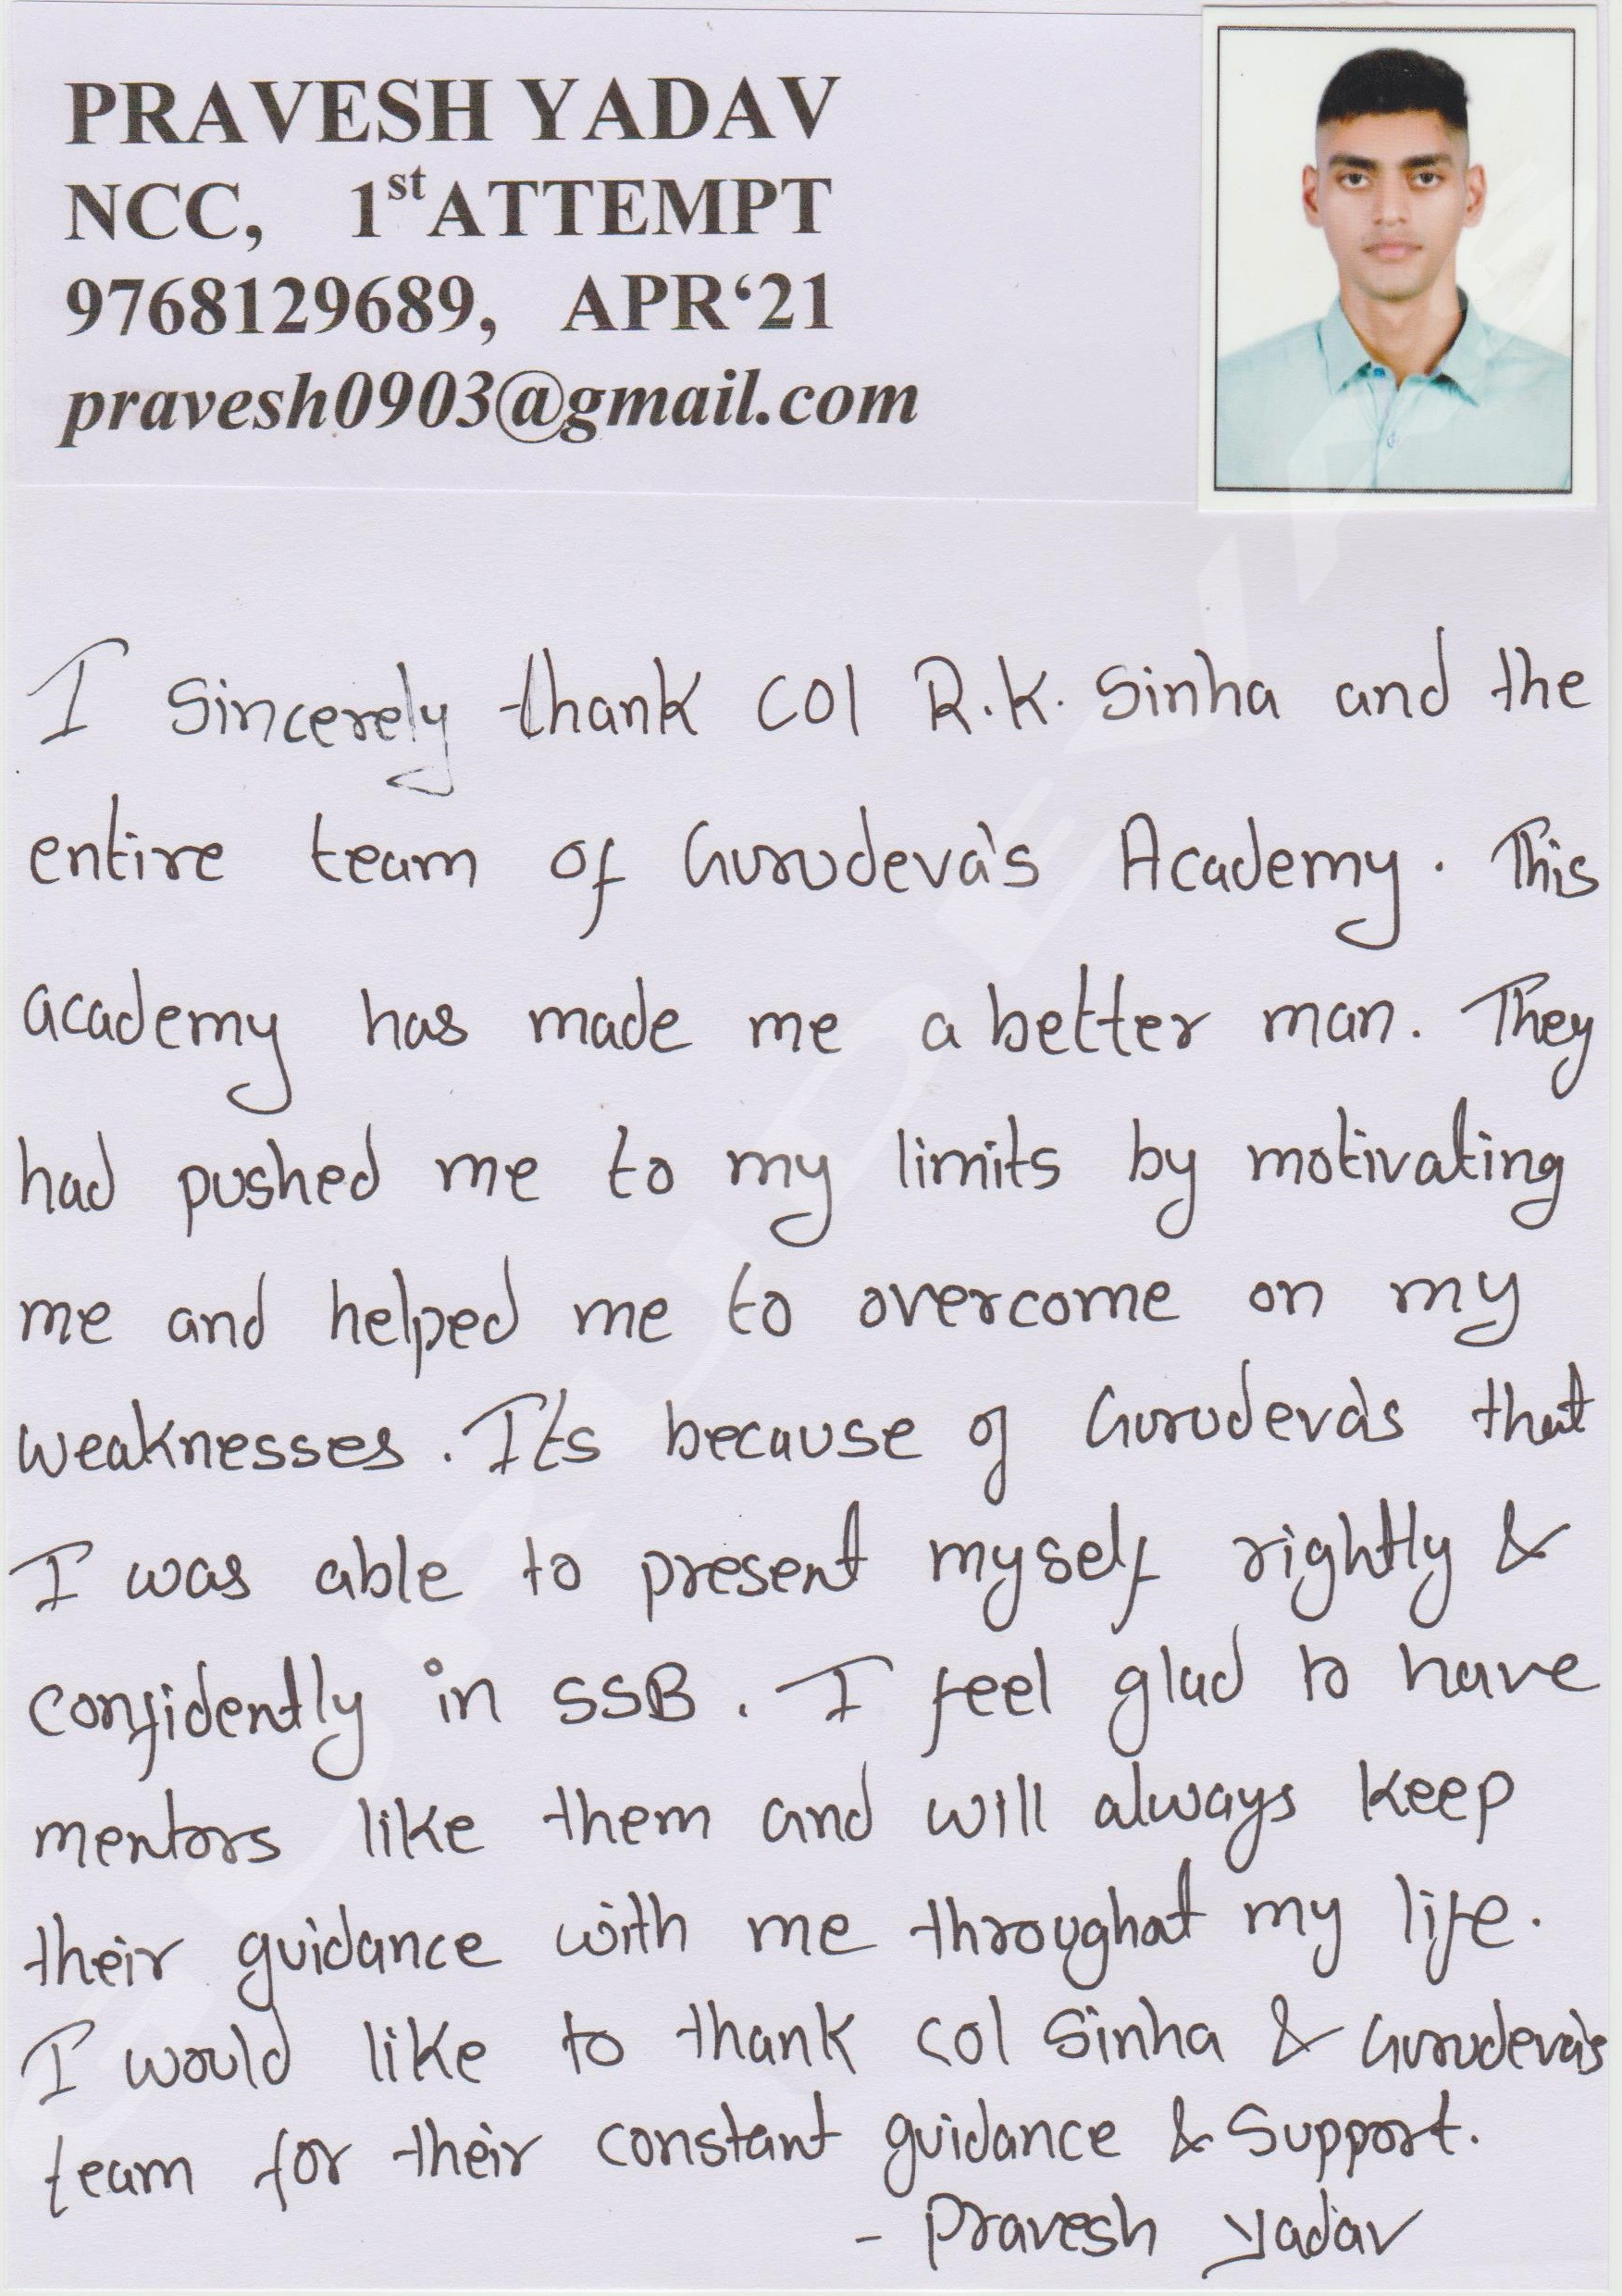 PRAVESH YADAV
NCC, 1st ATTEMPT
9768129689, APR‘21
pravesh0903@gmail.com
I sincerely thank Col R.K. Sinha and the
entire team of Gurudeva's Academy. This
academy has made me a better man. They
had pushed me to my limits by motivating
me and helped me to overcome on my
weaknesses. It's because of Gurudeva's that
I was able to present myself rightly &
confidently in SSB. I feel glad to have
mentors like them and will always keep
their guidance with me throughat my life.
I would like to thank Col Sinha & Gurudeva's
team for their constant guidance & Support.
- Pravesh Yadav
GURUDEVA'S